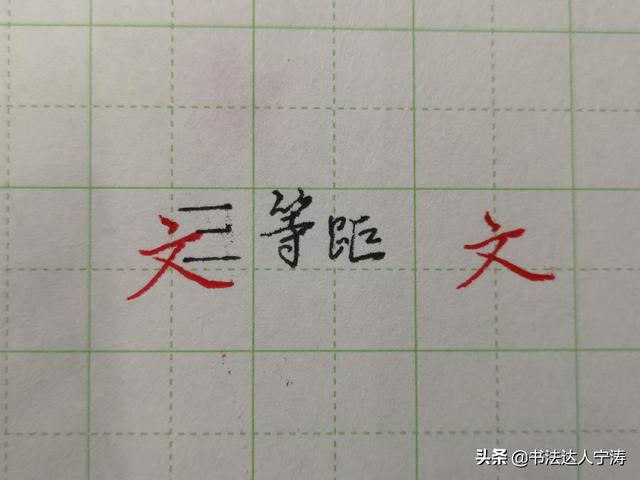 文 三 等距 文
头条 @书法达人宁涛